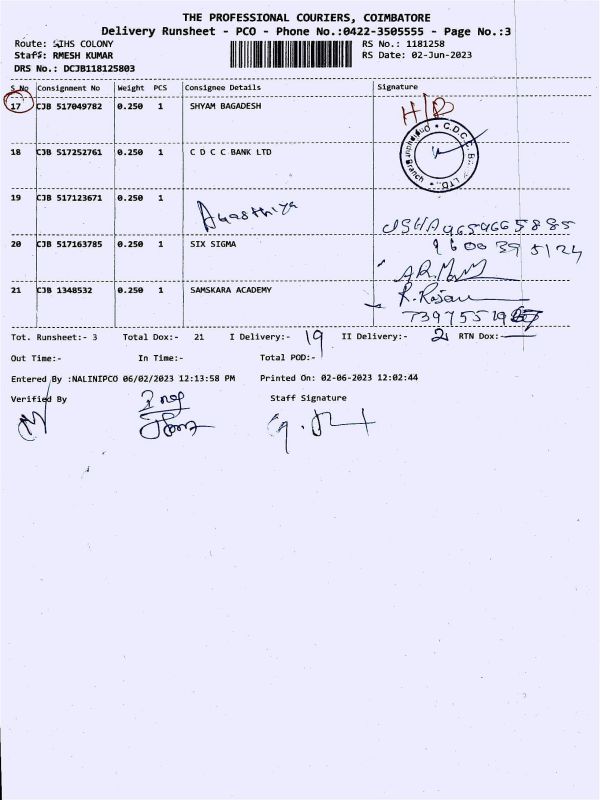 THE PROFESSIONAL COURIERS, COIMBATORE
Delivery Runsheet - PCO - Phone No.:0422-3505555 - Page No.:3
Route: SIHS COLONY RS No.: 1181258
Staff: RMESH KUMAR RS Date: 02-Jun-2023
DRS No.: DCJB118125803
S.No Consignment No Weight PCS Consignee Details Signature
17 CJB 517049782 0.250 1 SHYAM BAGADESH
18 CJB 517252761 0.250 1 C D C C BANK LTD
19 CJB 517123671 0.250 1
USHA 9659665885
20 CJB 517163785 0.250 1 SIX SIGMA
21 CJB 1348532 0.250 1 SAMSKARA ACADEMY
R. Rajan
Tot. Runsheet:- 3 Total Dox:- 21 I Delivery:- 19 II Delivery:- 2 RTN Dox:-
Out Time:- In Time:- Total POD:-
Entered By :NALINIPCO 06/02/2023 12:13:58 PM Printed On: 02-06-2023 12:02:44
Verified By Staff Signature